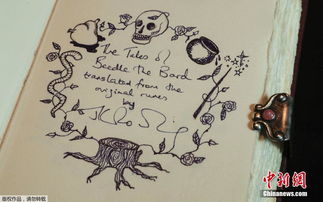 The Tales of
Beedle the Bard
translated from the
original runes
by
版权作品 请勿转载
中新网
Chinanews.com